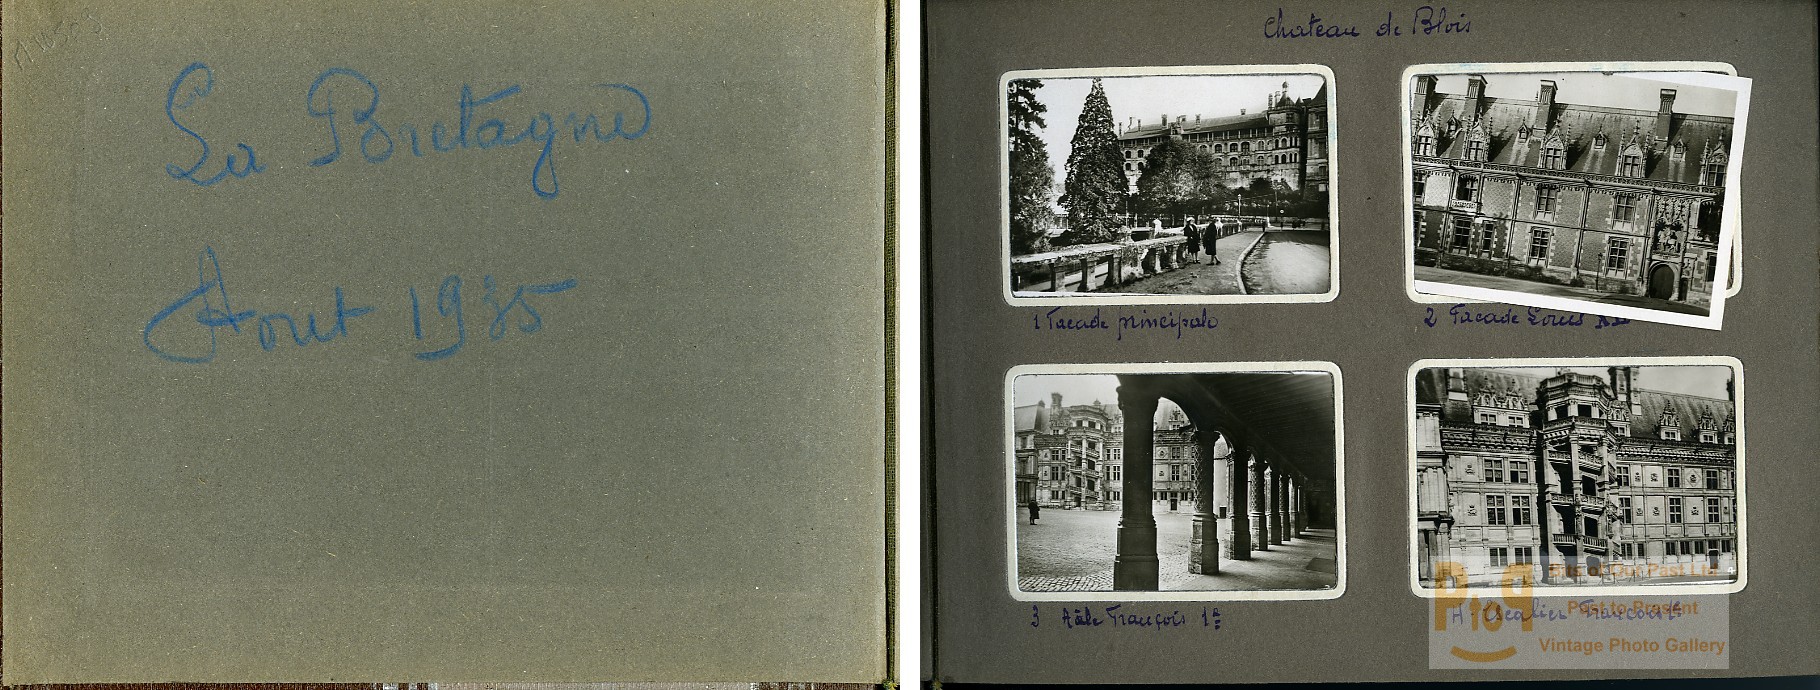 La Bretagne
Aout 1935
Chateau de Blois
1 Facade principale
2 Facade Louis XII
3 Aâle François 1er
4 Escalier
Bits of Our Past Ltd
Past to Present
Vintage Photo Gallery
PoP